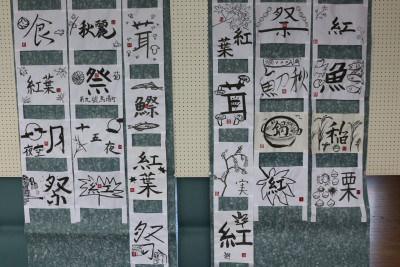 食
紅葉
祭
秋麗
祭
十五夜
茸
鰹
紅葉
祭
紅葉
茸
実
紅
祭
秋
鍋
紅
紅
魚
稲
栗